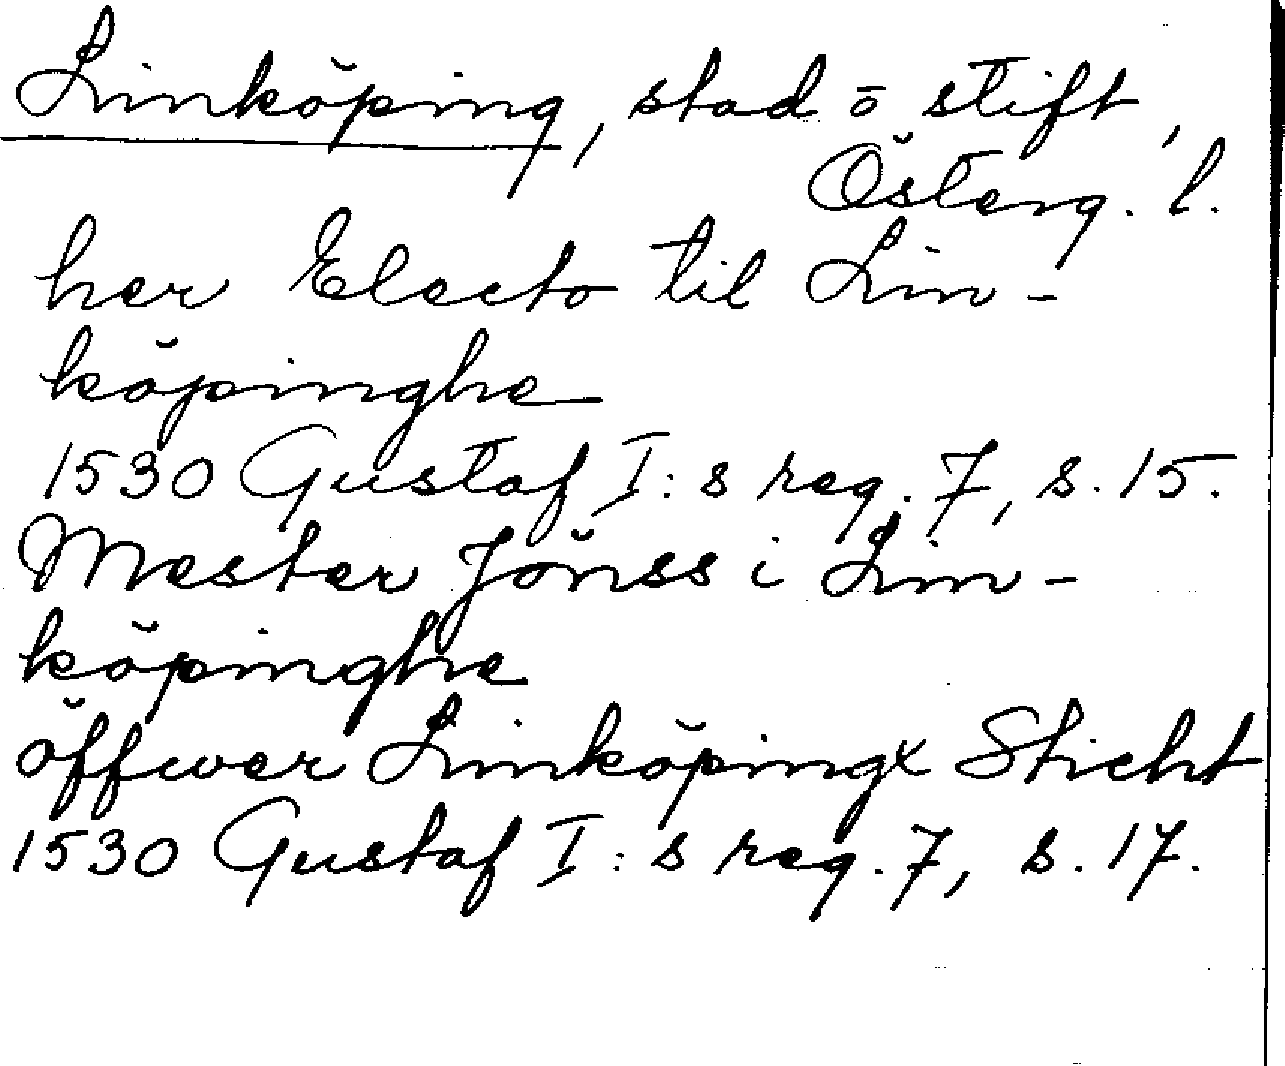 Linköping, stad o stift,
Österg. l.
her Electo til Lin-
köpinghe
1530 Gustaf I:s reg. 7, s. 15.
Mester Jönss i Lin-
köpinghe
öffwer Linköpingx Sticht
1530 Gustaf I:s reg. 7, s. 17.